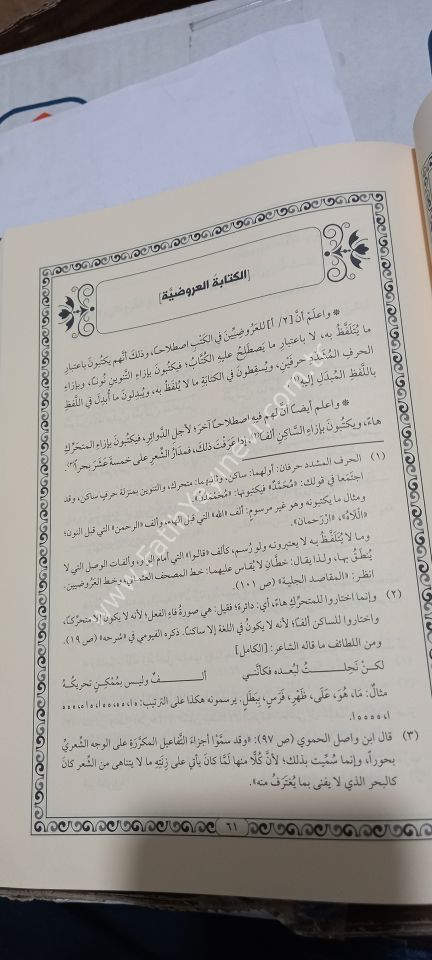 [الكتابة العروضيَّة]
* واعلَمْ أنَّ [٢/ أ] للعَرُوضيِّينَ في الكَتْبِ اصطلاحاً، وذلكَ أنَّهم يكتُبونَ باعتبارِ
ما يُتَلَفَّظُ به، لا باعتبارِ ما يَصطَلِحُ عليهِ الكُتَّابُ؛ فيكتبونَ بإزاءِ التنوينِ نُوناً، وبإزاءِ
الحرفِ المُشدَّدِ حرفَينِ، ويُسقِطونَ في الكتابةِ ما لا يُلفَظُ به، ويُبدِلونَ ما أُبدِلَ في اللَّفظِ
باللَّفظِ المُبدَلِ إليه(١).
* واعلم أيضاً أنَّ لهم فيهِ اصطلاحاً آخرَ؛ لأجلِ الدَّوائرِ، فيكتُبونَ بإزاءِ المتحرِّكِ
هاءً، ويكتُبونَ بإزاءِ السَّاكنِ ألفاً(٢)، وإذا عَرَفْتَ ذلكَ، فمَدَارُ الشِّعرِ على خمسةَ عَشَرَ بحراً(٣).
(١) الحرف المشدد حرفان: أولهما: ساكن، وثانيهما: متحرك، والتنوين بمنزلة حرفٍ ساكن، وقد
اجتمعا في قولك: «مُحَمَّدٌ» فيكتبونها: «مُحَمْمَدُنْ».
ومثال ما يكتبونه وهو غير مرسوم: ألف «الله» التي قبل الهاء، وألف «الرحمن» التي قبل النون؛
«اَللَاهُ»، «اَرْرَحمان».
وما لا يُتَلَفَّظُ به لا يعتبرونه ولو رُسم، كألف «قالوا» التي أمام الواو، وألفات الوصل التي لا
يُنطَقُ بها، ولذا يقال: خطَّان لا يُقاس عليهما: خط المصحف العثماني، وخط العَرُوضيين.
انظر: «المقاصد الجلية» (ص ١٠١).
(٢) وإنما اختاروا للمتحرِّكِ هاءً، أي: دائرة؛ فقيل: هي صورةُ فاءِ الفعل؛ لأنه لا يكون إلا متحرِّكاً،
واختاروا للساكن ألفاً؛ لأنه لا يكونُ في اللغة إلا ساكناً. ذكره الفيومي في «شرحه» (ص ١٩).
ومن اللطائف ما قاله الشاعر: [الكامل]
لكنْ نَحِلـتُ لبُعـده فكأنَّني ألــفٌ وليـس بمُمْكـنٍ تحريكُـهُ
مثالُ: مَا، هُوَ، عَلَى، ظَهْرِ، فَرَسٍ، بِبَطَلٍ. يرسمونه هكذا على الترتيب: ٥١، ٥٥، ٥٥١، ٥١٥، ٥٥٥١،
٥٥٥٥١.
(٣) قال ابن واصل الحموي (ص ٩٧): «وقد سمَّوْا أجزاءَ التَّفاعيل المكرَّرةِ على الوجه الشِّعريِّ
بحوراً، وإنما سُمِّيت بذلك؛ لأنَّ كُلًّا منها لَمَّا كان يأتي على زِنَتِهِ ما لا يتناهى من الشِّعر كان
كالبحر الذي لا يفنى بما يُغتَرَفُ منه».
٦١